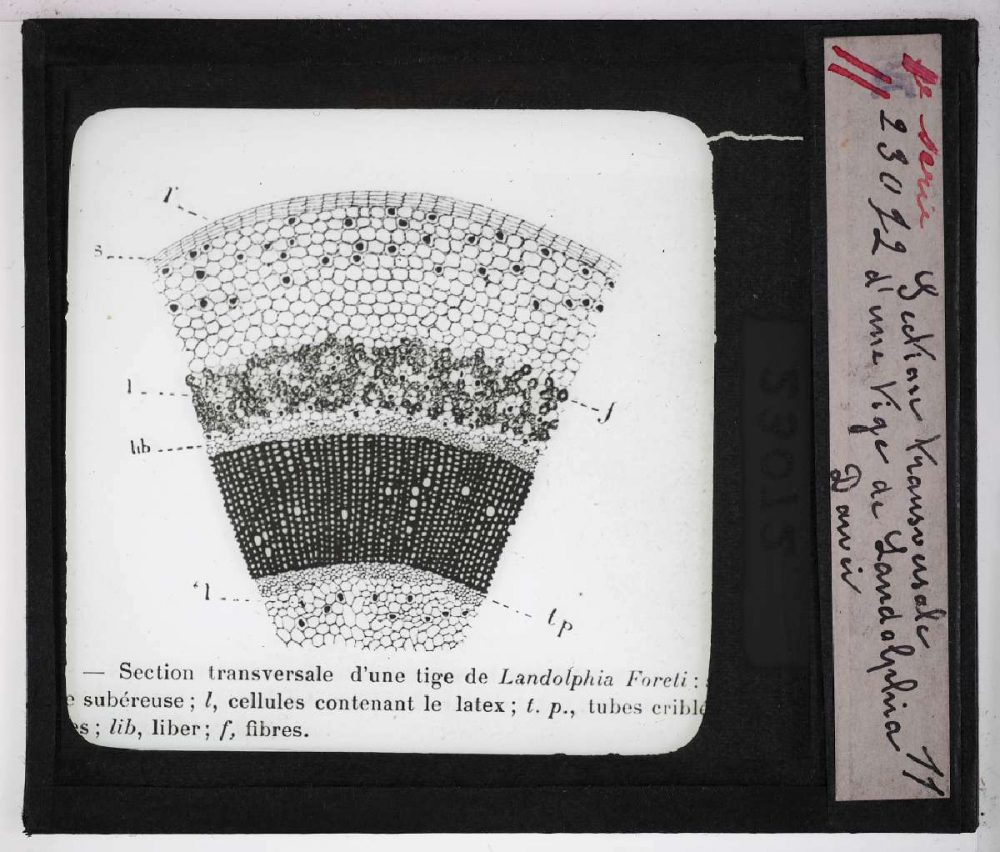 r
s
l
lib
f
l
t p
— Section transversale d'une tige de Landolphia Foreti :
e subéreuse ; l, cellules contenant le latex ; t. p., tubes criblé
es ; lib, liber ; f, fibres.
serie
Section transversale 11
d'une Tige de Landolphia
S3015